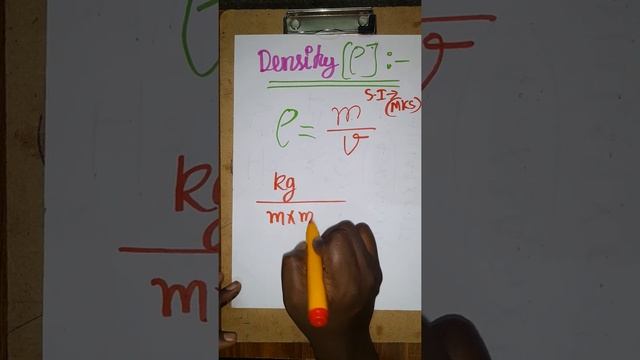 Density [ρ] :-
S.I→
(MKS)
ρ = m/v
kg
m×m